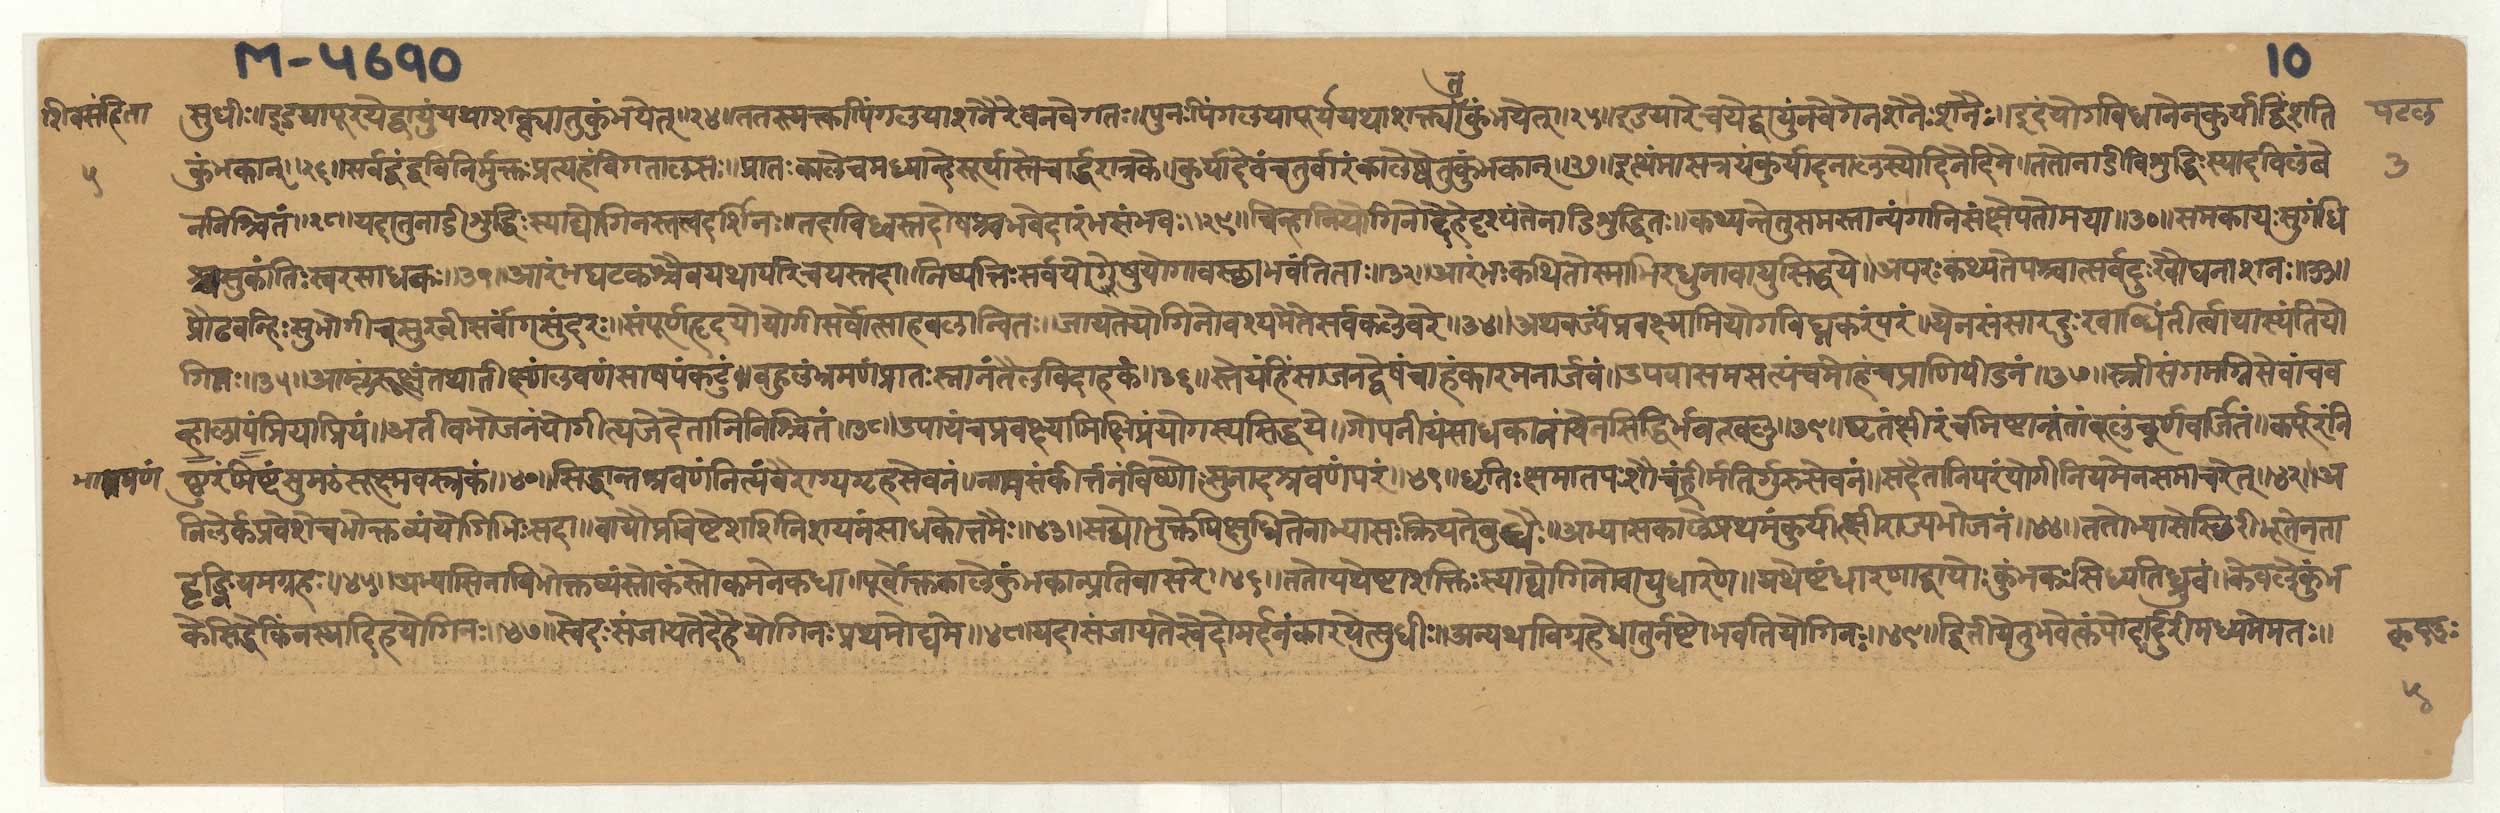 M-५६१० 10
शिवसंहिता सुधीः॥इडयापूरयेद्वायुंयथाशक्त्यातुकुंभयेत्॥२४॥ततस्त्यक्त्कापिंगलयाशनैरेवनवेगतः॥पुनःपिंगलयापूर्ययथाशक्त्यातुकुंभयेत्॥२५॥इडयारेचयेद्वायुंनवेगेनशनैःशनैः॥इदंयोगविधानेनकुर्याद्विंशति पटल
५ कुंभकान्॥२६॥सर्वद्वंद्वविनिर्मुक्तःप्रत्यहंविगतालसः॥प्रातःकालेचमध्यान्हेसूर्यास्तेचार्द्धरात्रके॥कुर्यादेवंचतुर्वारंकालेष्वेतुकुंभकान्॥२७॥इत्थंमासत्रयंकुर्यादनालस्योदिनेदिने॥ततोनाडीविशुद्धिःस्यादविलंबे ३
ननिश्चितं॥२८॥यदातुनाडीशुद्धिःस्याद्योगिनस्तत्वदर्शिनः॥तदाविध्वस्तदोषश्चभवेदारंभसंभवः॥२९॥चिन्हानियोगिनोदेहेदृश्यंतेनाडिशुद्धितः॥कथ्यन्तेतुसमस्तान्यंगानिसंक्षेपतोमया॥३०॥समकायःसुगंधि
श्चसुकांतिःस्वरसाधकः॥३१॥आरंभघटकश्चैवयथापरिचयस्तदा॥निष्पत्तिःसर्वयोगेषुयोगावस्छाभवंतिताः॥३२॥आरंभःकथितोस्माभिरधुनावायुसिद्धये॥अपरःकथ्यतेपश्चात्सर्वदुःखौघनाशनः॥३३॥
प्रौढवन्हिःसुभोगीचसुखीसर्वांगसुंदरः॥संपूर्णहृदयोयोगीसर्वोत्साहबलान्वितः॥जायतेयोगिनोवश्यमेतेसर्वकलेवरे॥३४॥अथवर्ज्यंप्रवक्ष्यामियोगविघ्नकरंपरं॥येनसंसारदुःखाब्धिंतीर्त्वायास्यंतियो
गिनः॥३५॥आम्लंरूक्षंतथातीक्ष्णंलवणंसार्षपंकटुं॥बहुलंभ्रमणंप्रातःस्नानंतैलविदाहकं॥३६॥स्तेयंहिंसाजनद्वेषंचाहंकारमनार्जवं॥उपवासमसत्यंचमोहंचप्राणिपीडनं॥३७॥स्त्रीसंगमग्निसेवांचव
व्हालापंप्रियाप्रियं॥अतीवभोजनंयोगीत्यजेदेतानिनिश्चितं॥३८॥उपायंचप्रवक्ष्यामिक्षिप्रंयोगस्यसिद्धये॥गोपनीयंसाधकानांयेनसिद्धिर्भवेत्खलु॥३९॥घृतंक्षीरंचमिष्टान्नंतांबूलंचूर्णवर्जितं॥कर्पूरंनि
ष्ठुरंमिष्टंसुमठंसूक्ष्मवस्त्रकं॥४०॥सिद्धान्तश्रवणंनित्यंवैराग्यगृहसेवनं॥नामसंकीर्त्तनंविष्णोःसुनादश्रवणंपरं॥४१॥धृतिःक्षमातपःशौचंह्रीर्मतिर्गुरुसेवनं॥सदैतानिपरंयोगीनियमेनसमाचरेत्॥४२॥अ
निलेर्कप्रवेशेचभोक्तव्यंयोगिभिःसदा॥वायौप्रविष्टेशशिनिशयनंसाधकोत्तमैः॥४३॥सद्योभुक्तेपिक्षुधितेनाभ्यासःक्रियतेबुधैः॥अभ्यासकालेप्रथमंकुर्यात्क्षीराज्यभोजनं॥४४॥ततोभ्यासेस्छिरीभूतेनता
दृङ्नियमग्रहः॥४५॥अभ्यासिनाविभोक्तव्यंस्तोकंस्तोकमनेकधा॥पूर्वोक्तकालेकुंभकान्प्रतिवासरे॥४६॥ततोयथेष्टाशक्तिःस्याद्योगिनोवायुधारणे॥यथेष्टंधारणाद्वायोःकुंभकःसिध्यतिध्रुवं॥केवलेकुंभ
केसिद्धेकिंनस्यादिहयोगिनः॥४७॥स्वेदःसंजायतेदेहेयोगिनःप्रथमोद्यमे॥४८॥यदासंजायतेस्वेदोमर्दनंकारयेत्सुधीः॥अन्यथाविग्रहेधातुर्नष्टोभवतियोगिनः॥४९॥द्वितीयेतुभवेत्कंपोदर्दुरीमध्यमेमतः॥
५